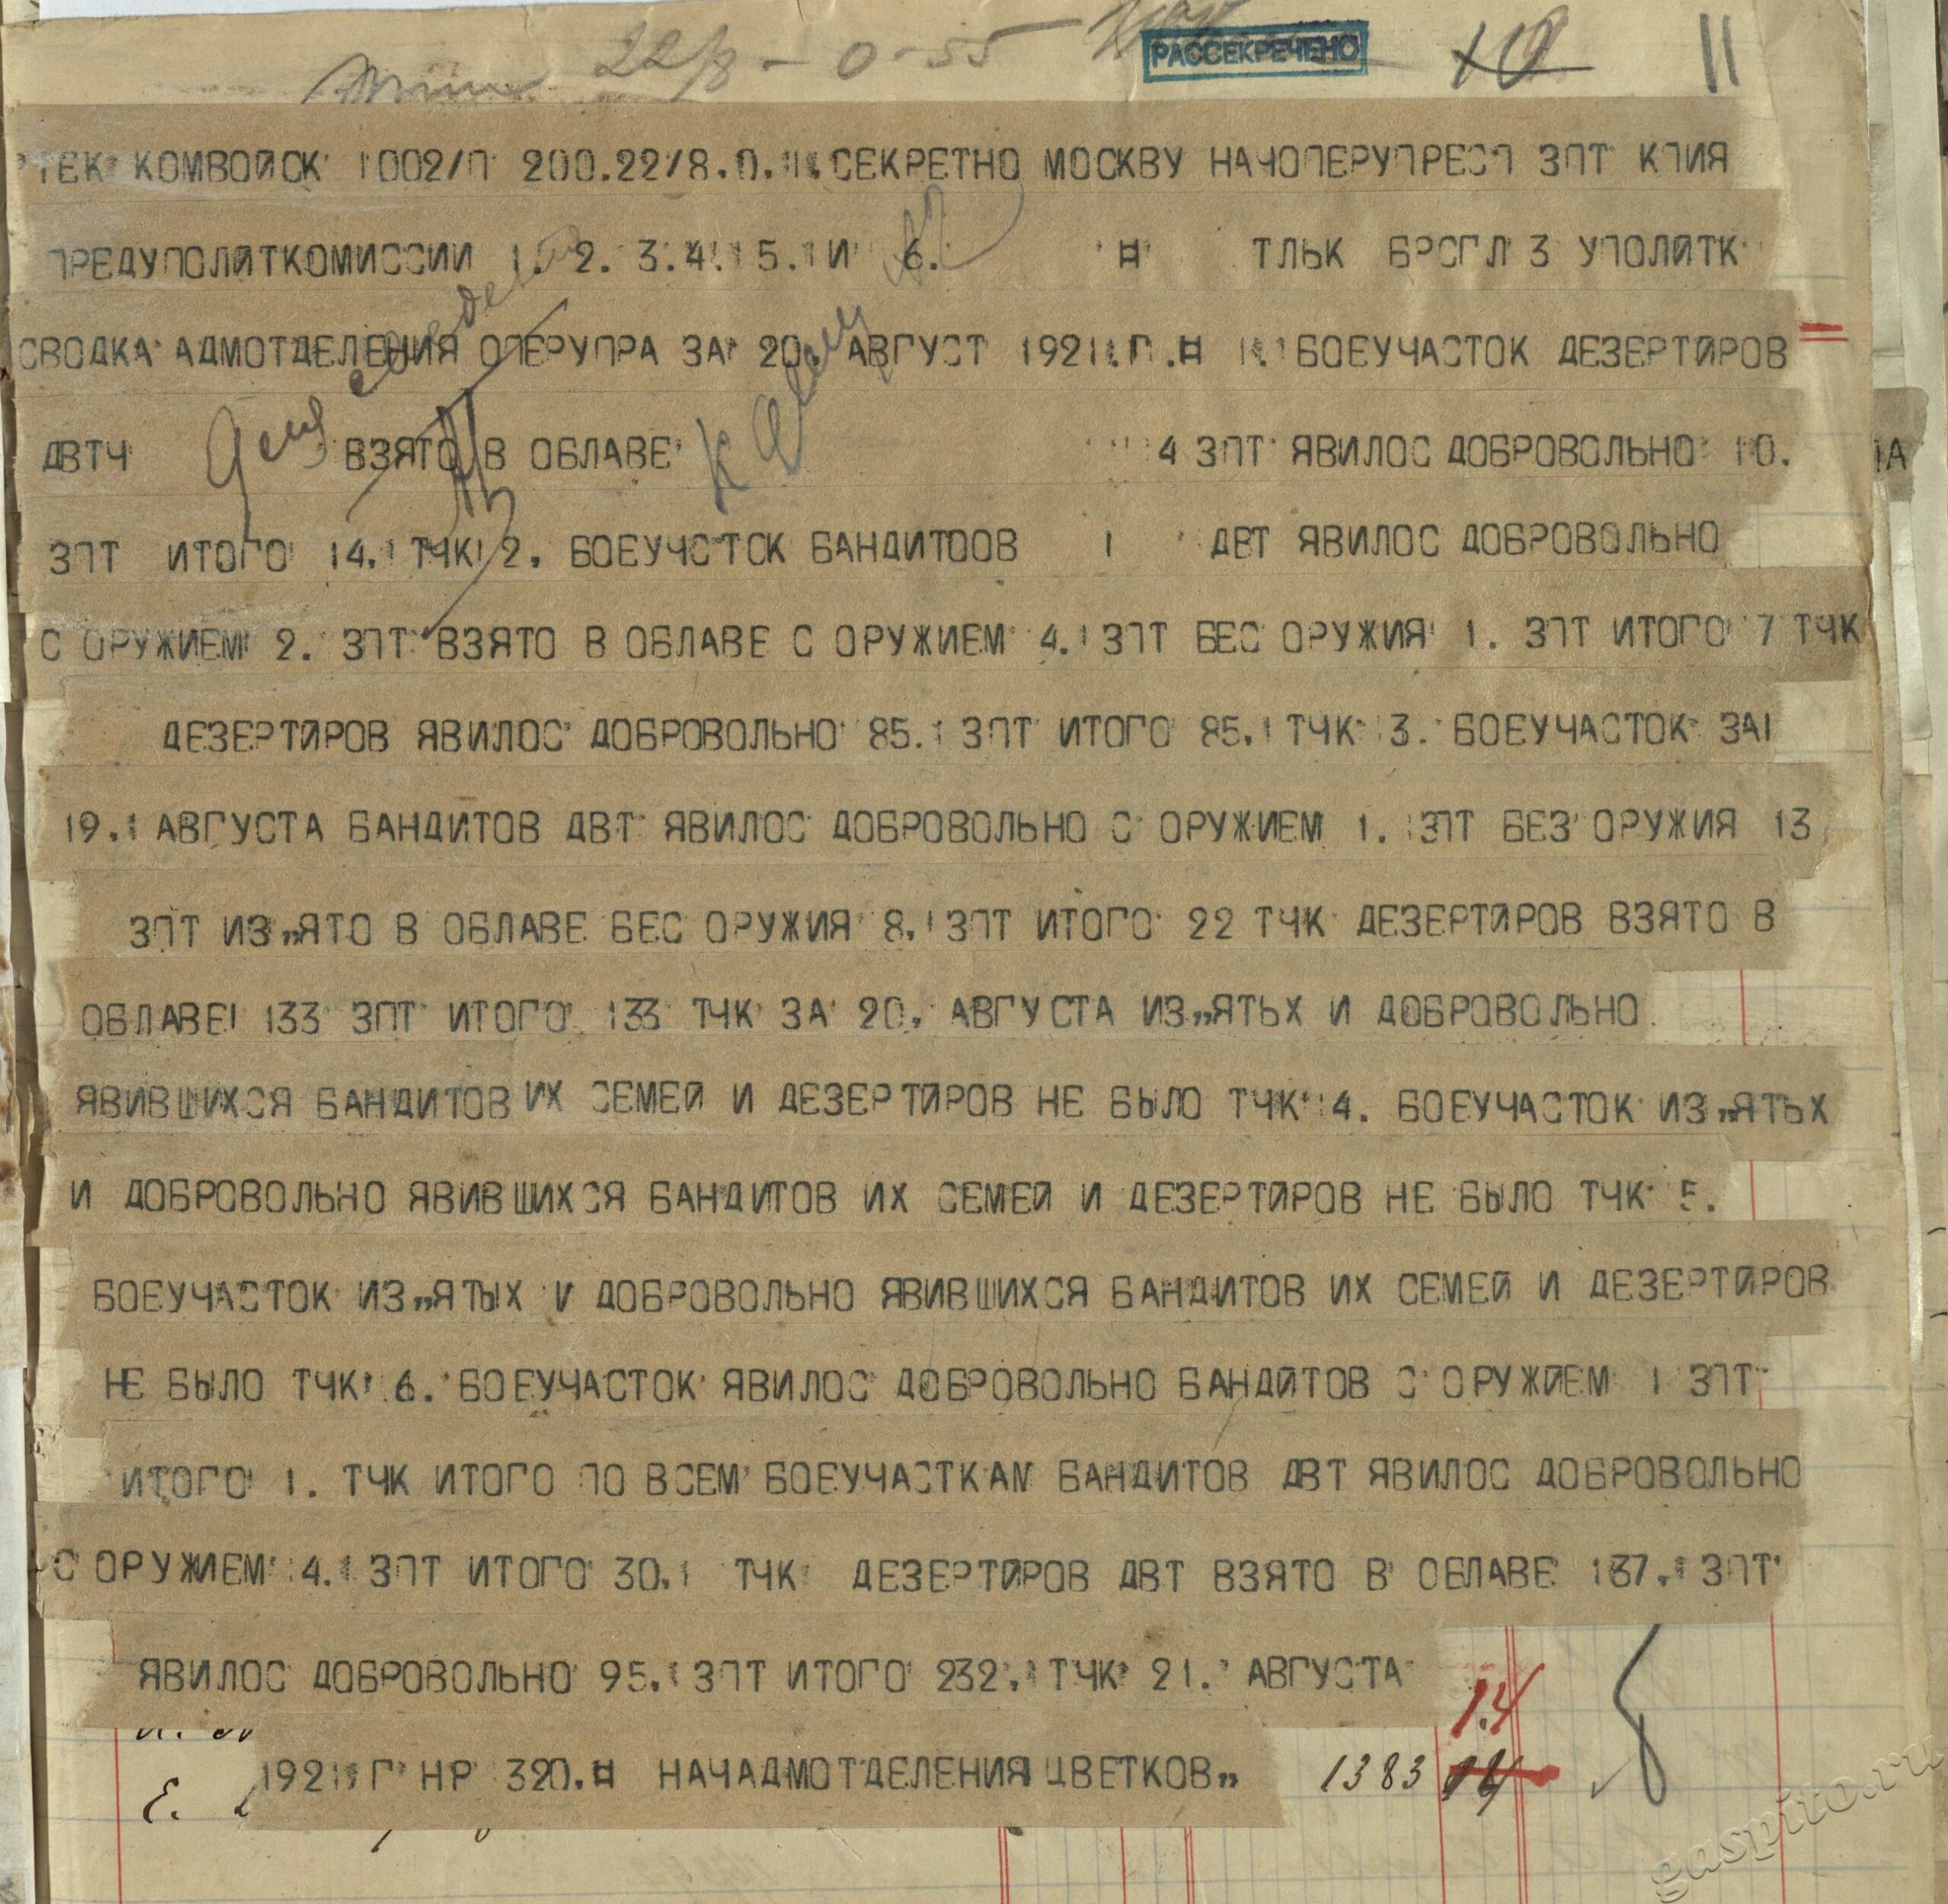 22/8 - 0-55
РАССЕКРЕЧЕНО
10
11
РТЕК КОМВОЙСК 1002/П 200.22/8.0.11.СЕКРЕТНО МОСКВУ НАЧОПЕРУПРЕСП ЗПТ КПИЯ
ПРЕДУПОЛИТКОМИССИИ 1. 2. 3.4. 5. И 6. Н ТЛЬК БРСГЛ 3 УПОЛИТК
СВОДКА АДМОТДЕЛЕНИЯ ОПЕРУПРА ЗА 20. АВГУСТ 1921.Г.Н 1. БОЕУЧАСТОК ДЕЗЕРТИРОВ
ДВТЧ ВЗЯТО В ОБЛАВЕ 4 ЗПТ ЯВИЛОС ДОБРОВОЛЬНО 10. 1А
ЗПТ ИТОГО 14. ТЧК 2. БОЕУЧСТСК БАНДИТООВ 1 ДВТ ЯВИЛОС ДОБРОВОЛЬНО
С ОРУЖИЕМ 2. ЗПТ ВЗЯТО В ОБЛАВЕ С ОРУЖИЕМ 4. ЗПТ БЕС ОРУЖИЯ 1. ЗПТ ИТОГО 7 ТЧК
ДЕЗЕРТИРОВ ЯВИЛОС ДОБРОВОЛЬНО 85. ЗПТ ИТОГО 85. ТЧК 3. БОЕУЧАСТОК ЗА1
19. АВГУСТА БАНДИТОВ ДВТ ЯВИЛОС ДОБРОВОЛЬНО С ОРУЖИЕМ 1. ЗПТ БЕЗ ОРУЖИЯ 13
ЗПТ ИЗ„ЯТО В ОБЛАВЕ БЕС ОРУЖИЯ 8. ЗПТ ИТОГО 22 ТЧК ДЕЗЕРТИРОВ ВЗЯТО В
ОБЛАВЕ 133 ЗПТ ИТОГО 133 ТЧК ЗА 20. АВГУСТА ИЗ„ЯТЬХ И ДОБРОВОЛЬНО
ЯВИВШИХСЯ БАНДИТОВ ИХ СЕМЕЙ И ДЕЗЕРТИРОВ НЕ БЫЛО ТЧК 4. БОЕУЧАСТОК ИЗ„ЯТЬХ
И ДОБРОВОЛЬНО ЯВИВШИХСЯ БАНДИТОВ ИХ СЕМЕЙ И ДЕЗЕРТИРОВ НЕ БЫЛО ТЧК 5.
БОЕУЧАСТОК ИЗ„ЯТЫХ И ДОБРОВОЛЬНО ЯВИВШИХСЯ БАНДИТОВ ИХ СЕМЕЙ И ДЕЗЕРТИРОВ
НЕ БЫЛО ТЧК 6. БОЕУЧАСТОК ЯВИЛОС ДОБРОВОЛЬНО БАНДИТОВ С ОРУЖИЕМ 1 ЗПТ
ИТОГО 1. ТЧК ИТОГО ПО ВСЕМ БОЕУЧАСТКАМ БАНДИТОВ ДВТ ЯВИЛОС ДОБРОВОЛЬНО
С ОРУЖИЕМ 4. ЗПТ ИТОГО 30. ТЧК ДЕЗЕРТИРОВ ДВТ ВЗЯТО В ОБЛАВЕ 137. ЗПТ
ЯВИЛОС ДОБРОВОЛЬНО 95. ЗПТ ИТОГО 232. ТЧК 21. АВГУСТА
1921 Г НР 320.Н НАЧАДМОТДЕЛЕНИЯ ЦВЕТКОВ„
1383
14
gaspito.ru